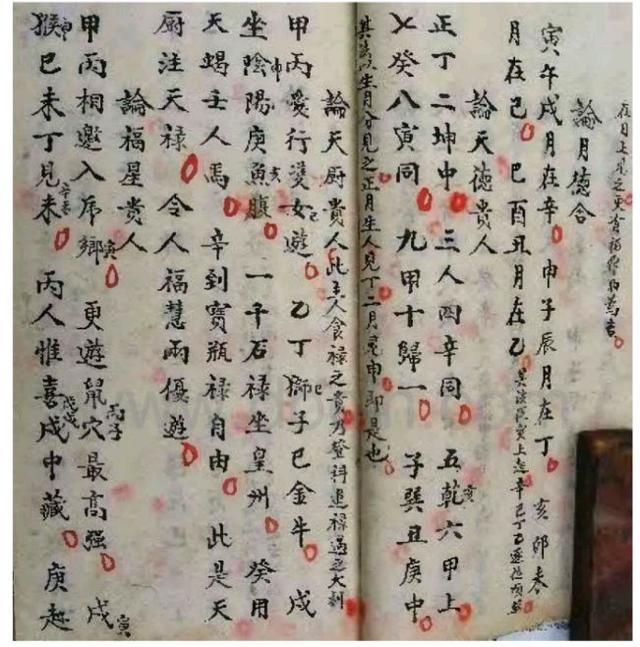 在月上見之更有福
論月德合
寅午戌月在辛 申子辰月在丁 亥卯未
月在己 巳酉丑月在乙 其法從寅上起辛己丁乙
論天德貴人
正丁二坤中 三人四辛同 五乾亥六甲上
七癸八寅同 九甲十歸一 子巽丑庚中
其法以生月分見之正月生人見丁二月見申即是也
論天厨貴人此主人食祿之貴乃登科進祿遇之大利
甲丙愛行雙女遊 乙丁獅子巳金牛 戊
坐陰陽申庚魚腹亥 一千石祿坐皇州 癸用
天蝎壬人馬 辛到寶瓶祿自由 此是天
厨注天祿 令人福慧兩優遊
論福星貴人
甲丙相邀入虎鄉寅 更遊鼠穴最高强 戊
猴申巳未丁見未 丙人惟喜戌中藏 庚趁